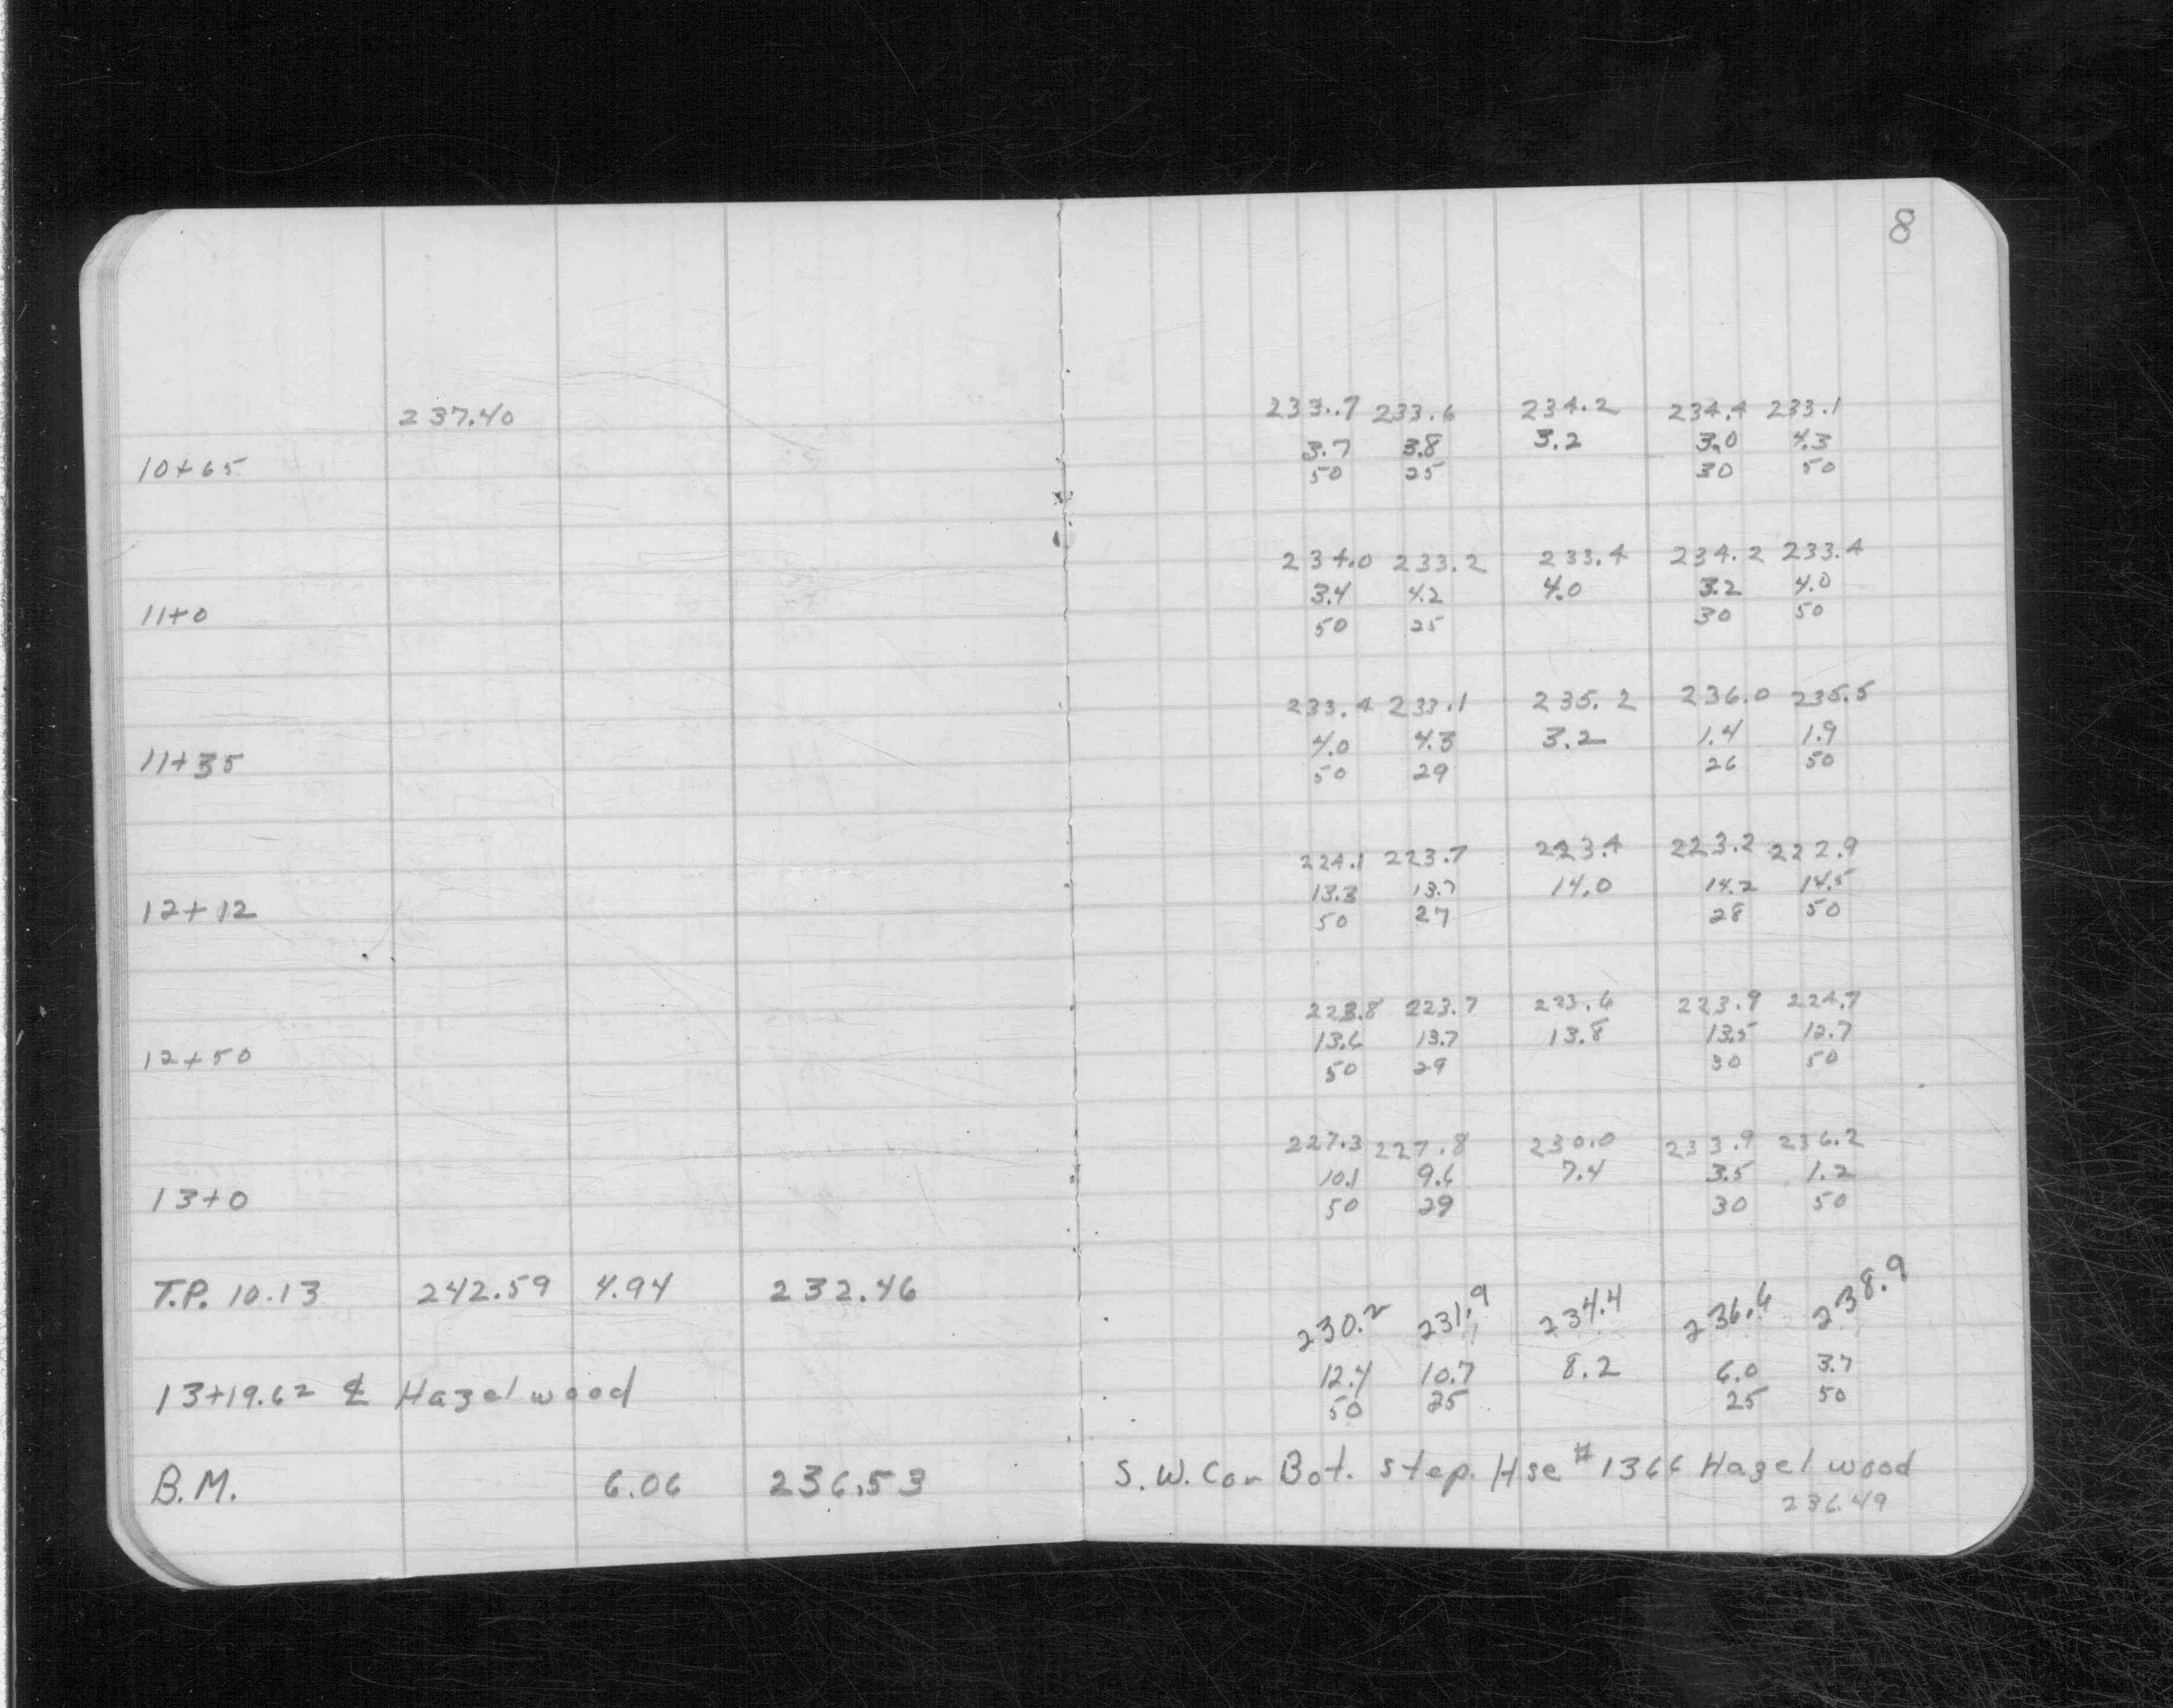 8
237.40 233.7 233.6 234.2 234.4 233.1
3.7 3.8 3.2 3.0 4.3
10+65 50 25 30 50
234.0 233.2 233.4 234.2 233.4
3.4 4.2 4.0 3.2 4.0
11+0 50 25 30 50
233.4 233.1 235.2 236.0 235.5
4.0 4.3 3.2 1.4 1.9
11+35 50 29 26 50
224.1 223.7 223.4 223.2 222.9
13.3 13.7 14.0 14.2 14.5
12+12 50 27 28 50
223.8 223.7 223.6 223.9 224.7
13.6 13.7 13.8 13.5 12.7
12+50 50 29 30 50
227.3 227.8 230.0 233.9 236.2
10.1 9.6 7.4 3.5 1.2
13+0 50 29 30 50
T.P. 10.13 242.59 4.94 232.46 230.2 231.9 234.4 236.6 238.9
12.4 10.7 8.2 6.0 3.7
13+19.62 ℄ Hazelwood 50 25 25 50
B.M. 6.06 236.53 S.W. Cor Bot. Step. Hse #1366 Hazelwood
236.49